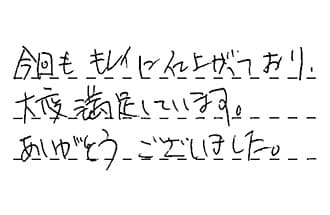 今回も キレイに仕上がっており、
大変満足しています。
ありがとう ございました。